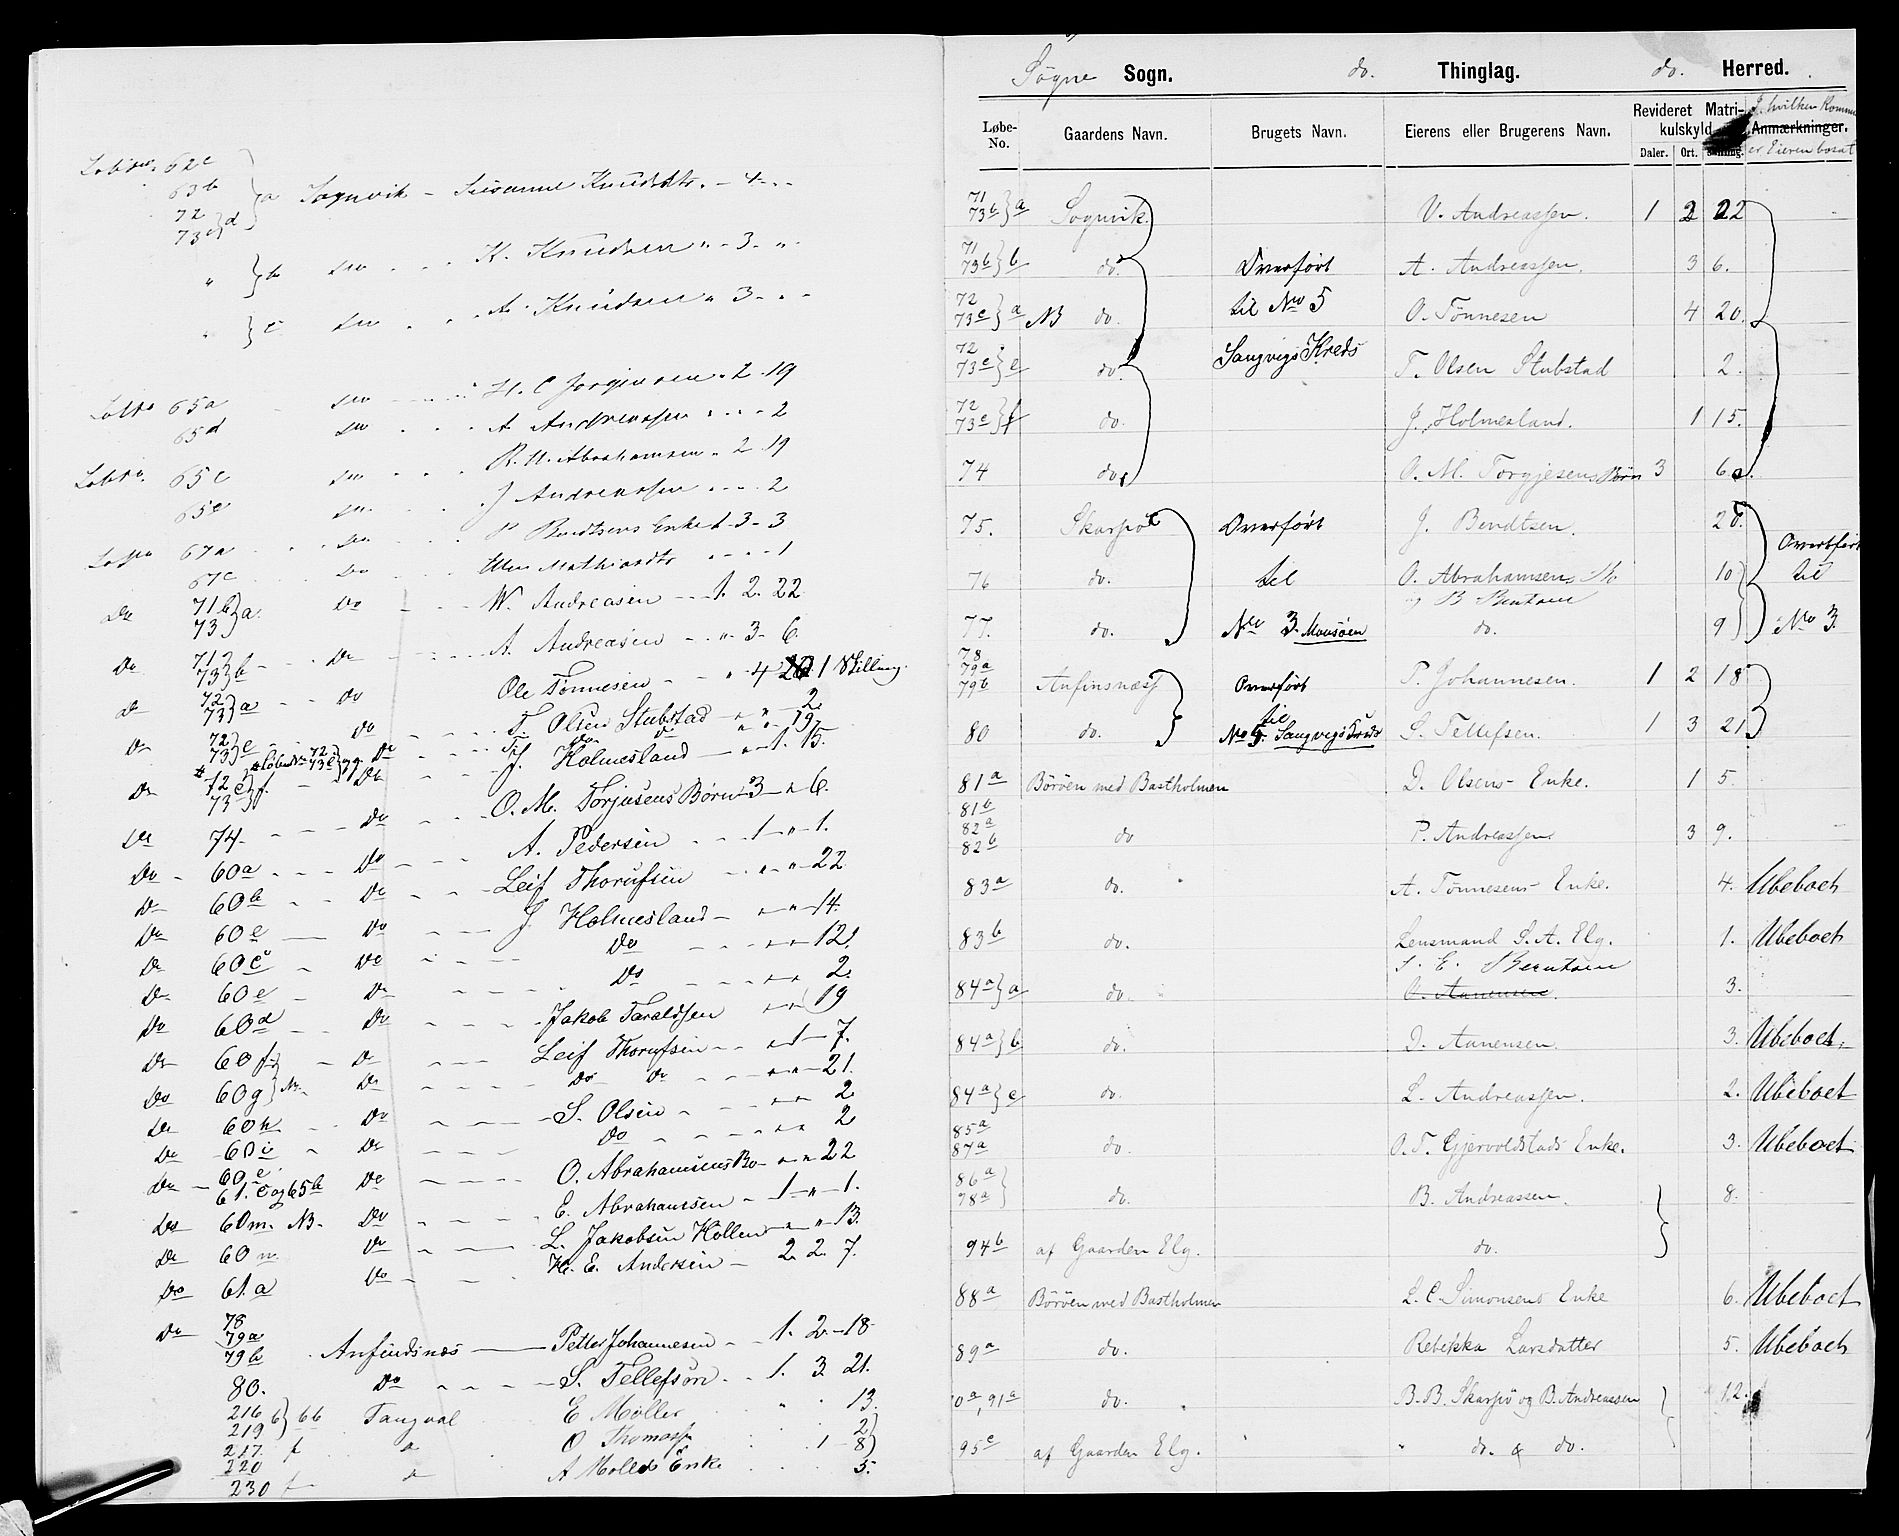 Løbno. 62c
63b
72
73c } d } a Sognvik - Susanne Knudsdtr. - 4 - -
" } b do K. Knudsen " - 3 - "
" } c do A. Knudsen " 3 - -
Løbno 65a do H. C. Jørgensen - 2 - 19
65d do A Andreassen - - - 2
Løbno. 65c do R. N. Abrahamsen - 2 - 19
65e do J Andreassen - - - 2
Løbno 67a do P Bendtsens Enke 1 - 3 - 3
67c do Mathiasdtr - - - 1
Do 71b
73 } a. Do W. Andreasen - 1. 2. 22
Do 71
73 } b - Do A. Andreasen - " 3 - 6.
Do 72
73 } a - Do Ole Tønnesen - " 4 1 Skilling.
Do 72
73 } e Do T. Olsen Stubstad - " " 2.
Løbno 72
73c } g Do Do Do " " 19
Do 72
73 e } f. Do J. Holmesland - " 1. 15.
Do 74. Do O. M. Torjusens Børn " 3 - " 6.
Do 60a Do A. Pedersen - 1 - " 1.
Do 60b Do Leif Thorufsen " " 22
Do 60e Do J. Holmesland - " " 14.
Do 60c Do Do " " 12.
Do 60e Do Do " " 2.
Do 60d Do Jakob Taraldsen " " 19
Do 60f Do Leif Thorufsen - " 1 - 7.
Do 60g Do Do Do " " 21.
Do 60h Do S. Olsen " " 2
Do 60i Do Do " " 2
Do 60e
61. c og 65b Do O. Abrahamsens Bo " " 22
Do 60m. NB. Do E. Abrahamsen - 1 - " - 1.
Do 60n Do L. Jakobsen Hollen " " 13.
Do 61.a Do H. E. Andersen - 2. 2. 7.
Do 78
79a
79b Anfindsnæs Petter Johannesen - 1. 2. - 18
80. Do S. Tellefsen - 1. 3. 21.
216
219 } 66 Tangval E Møller 13.
217. f O Thomass 2
220 1 - 8
230 f A Møllers Enke 5.
Søgne Sogn. do. Thinglag. do. Herred.
Løbe-No. Gaardens Navn. Brugets Navn. Eierens eller Brugerens Navn. Revideret Matrikulskyld Anmærkninger.
I hvilken Komm
er Eieren bosat
Daler. Ort. Skilling.
71
73b } a Sognvik. V. Andreassen. 1 2 22
71
73b } b do. Overført A. Andreassen. 3 6.
72
73c } a NB do. til No 5 O. Tønnesen 4 20.
72
73c } e do. Sangvigs Kreds T. Olsen Stubstad 2.
72
73c } f do. J. Holmesland. 1 15.
74 do. O. M. Torgjesens Børn 3 6
75. Skarpö Overført J. Bendtsen. 20. Overført
76 do. til O. Abrahamsens Bo 10 til
og B Bentsen
77. do. No 3. Monsøen do. 9 No 3.
78
79a
79b Anfinsnæss Overført P. Johannesen. 1 2 18
80 do. til No 5. Sangvigs Kreds S. Tellefsen. 1 3 21
81a Börøen med Bastholmen D. Olsens Enke. 1 5.
81b
82a
82b do P. Andreassen 3 9.
83a do. A. Tønnesens Enke. 4. Ubeboet
83b do. Lensmand S. A. Elg. 1. Ubeboet
S. E. Berntsen
84a } a do. O. Aanensen. 3.
84a } b do. D. Aanensen. 3. Ubeboet.
84a } c do. L. Andreassen. 2. Ubeboet
85a
87a do. O. T. Gjervoldstads Enke. 3. Ubeboet
86a
78a } do. B. Andreassen. 8.
94b af Gaarden Elg. do.
88a Börøen med Bastholmen L. C. Simonsens Enke 6. Ubeboet
89a do. Rebekka Larsdatter 5. Ubeboet
0a, 91a do. B. B. Skarpö og B. Andreassen 12.
95c af Gaarden Elg. do. & do.